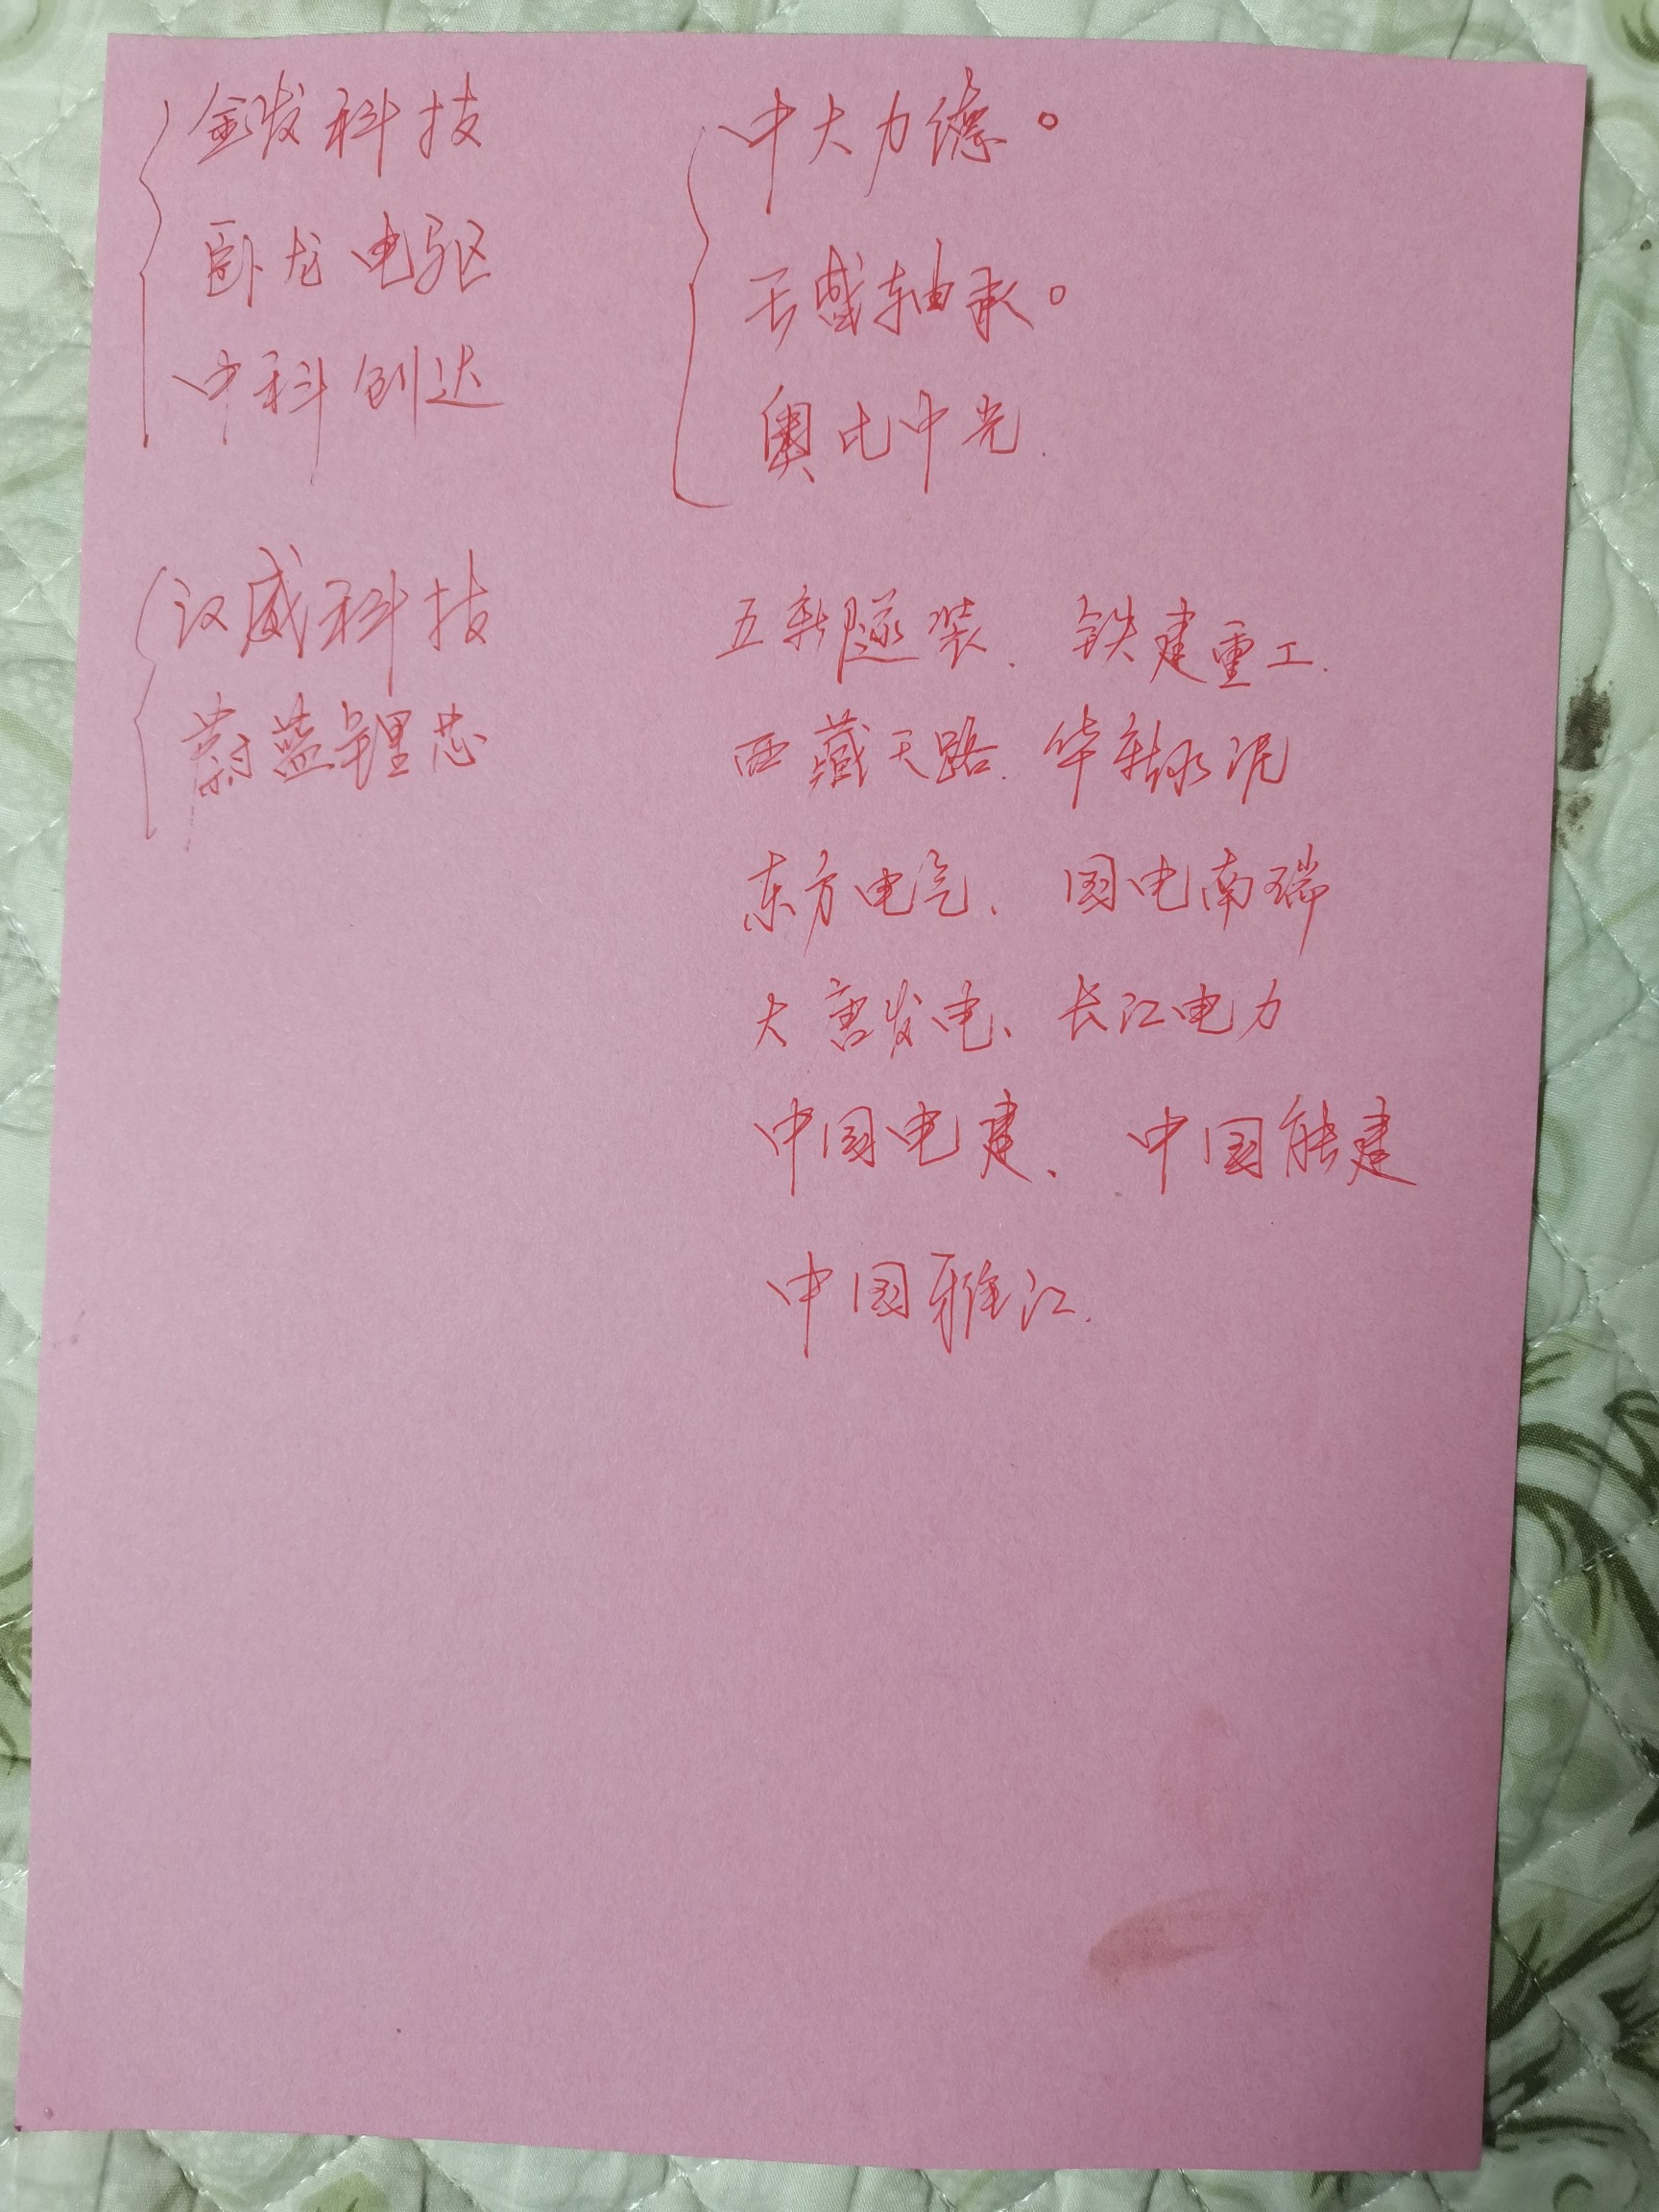 金发科技
卧龙电驱
中科创达
汉威科技
蔚蓝锂芯
中大力德。
五新隧装、铁建重工.
西藏天路、华新水泥
东方电气、国电南瑞
大唐发电、长江电力
中国电建、中国能建
中国雅江.
奥比中光.
轴承。